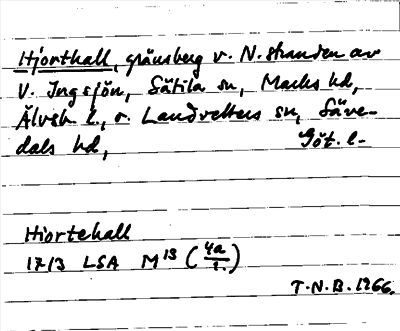 Hjorthall, gränsberg v. N. stranden av
V. Ingsjön, Sätila sn, Marks hd,
Älvsb. l., o. Landvetters sn, Säve-
dals hd, Göt. l.
Hiortehall
1713 LSA M13 (4a/1.)
T.N.B. 1966.